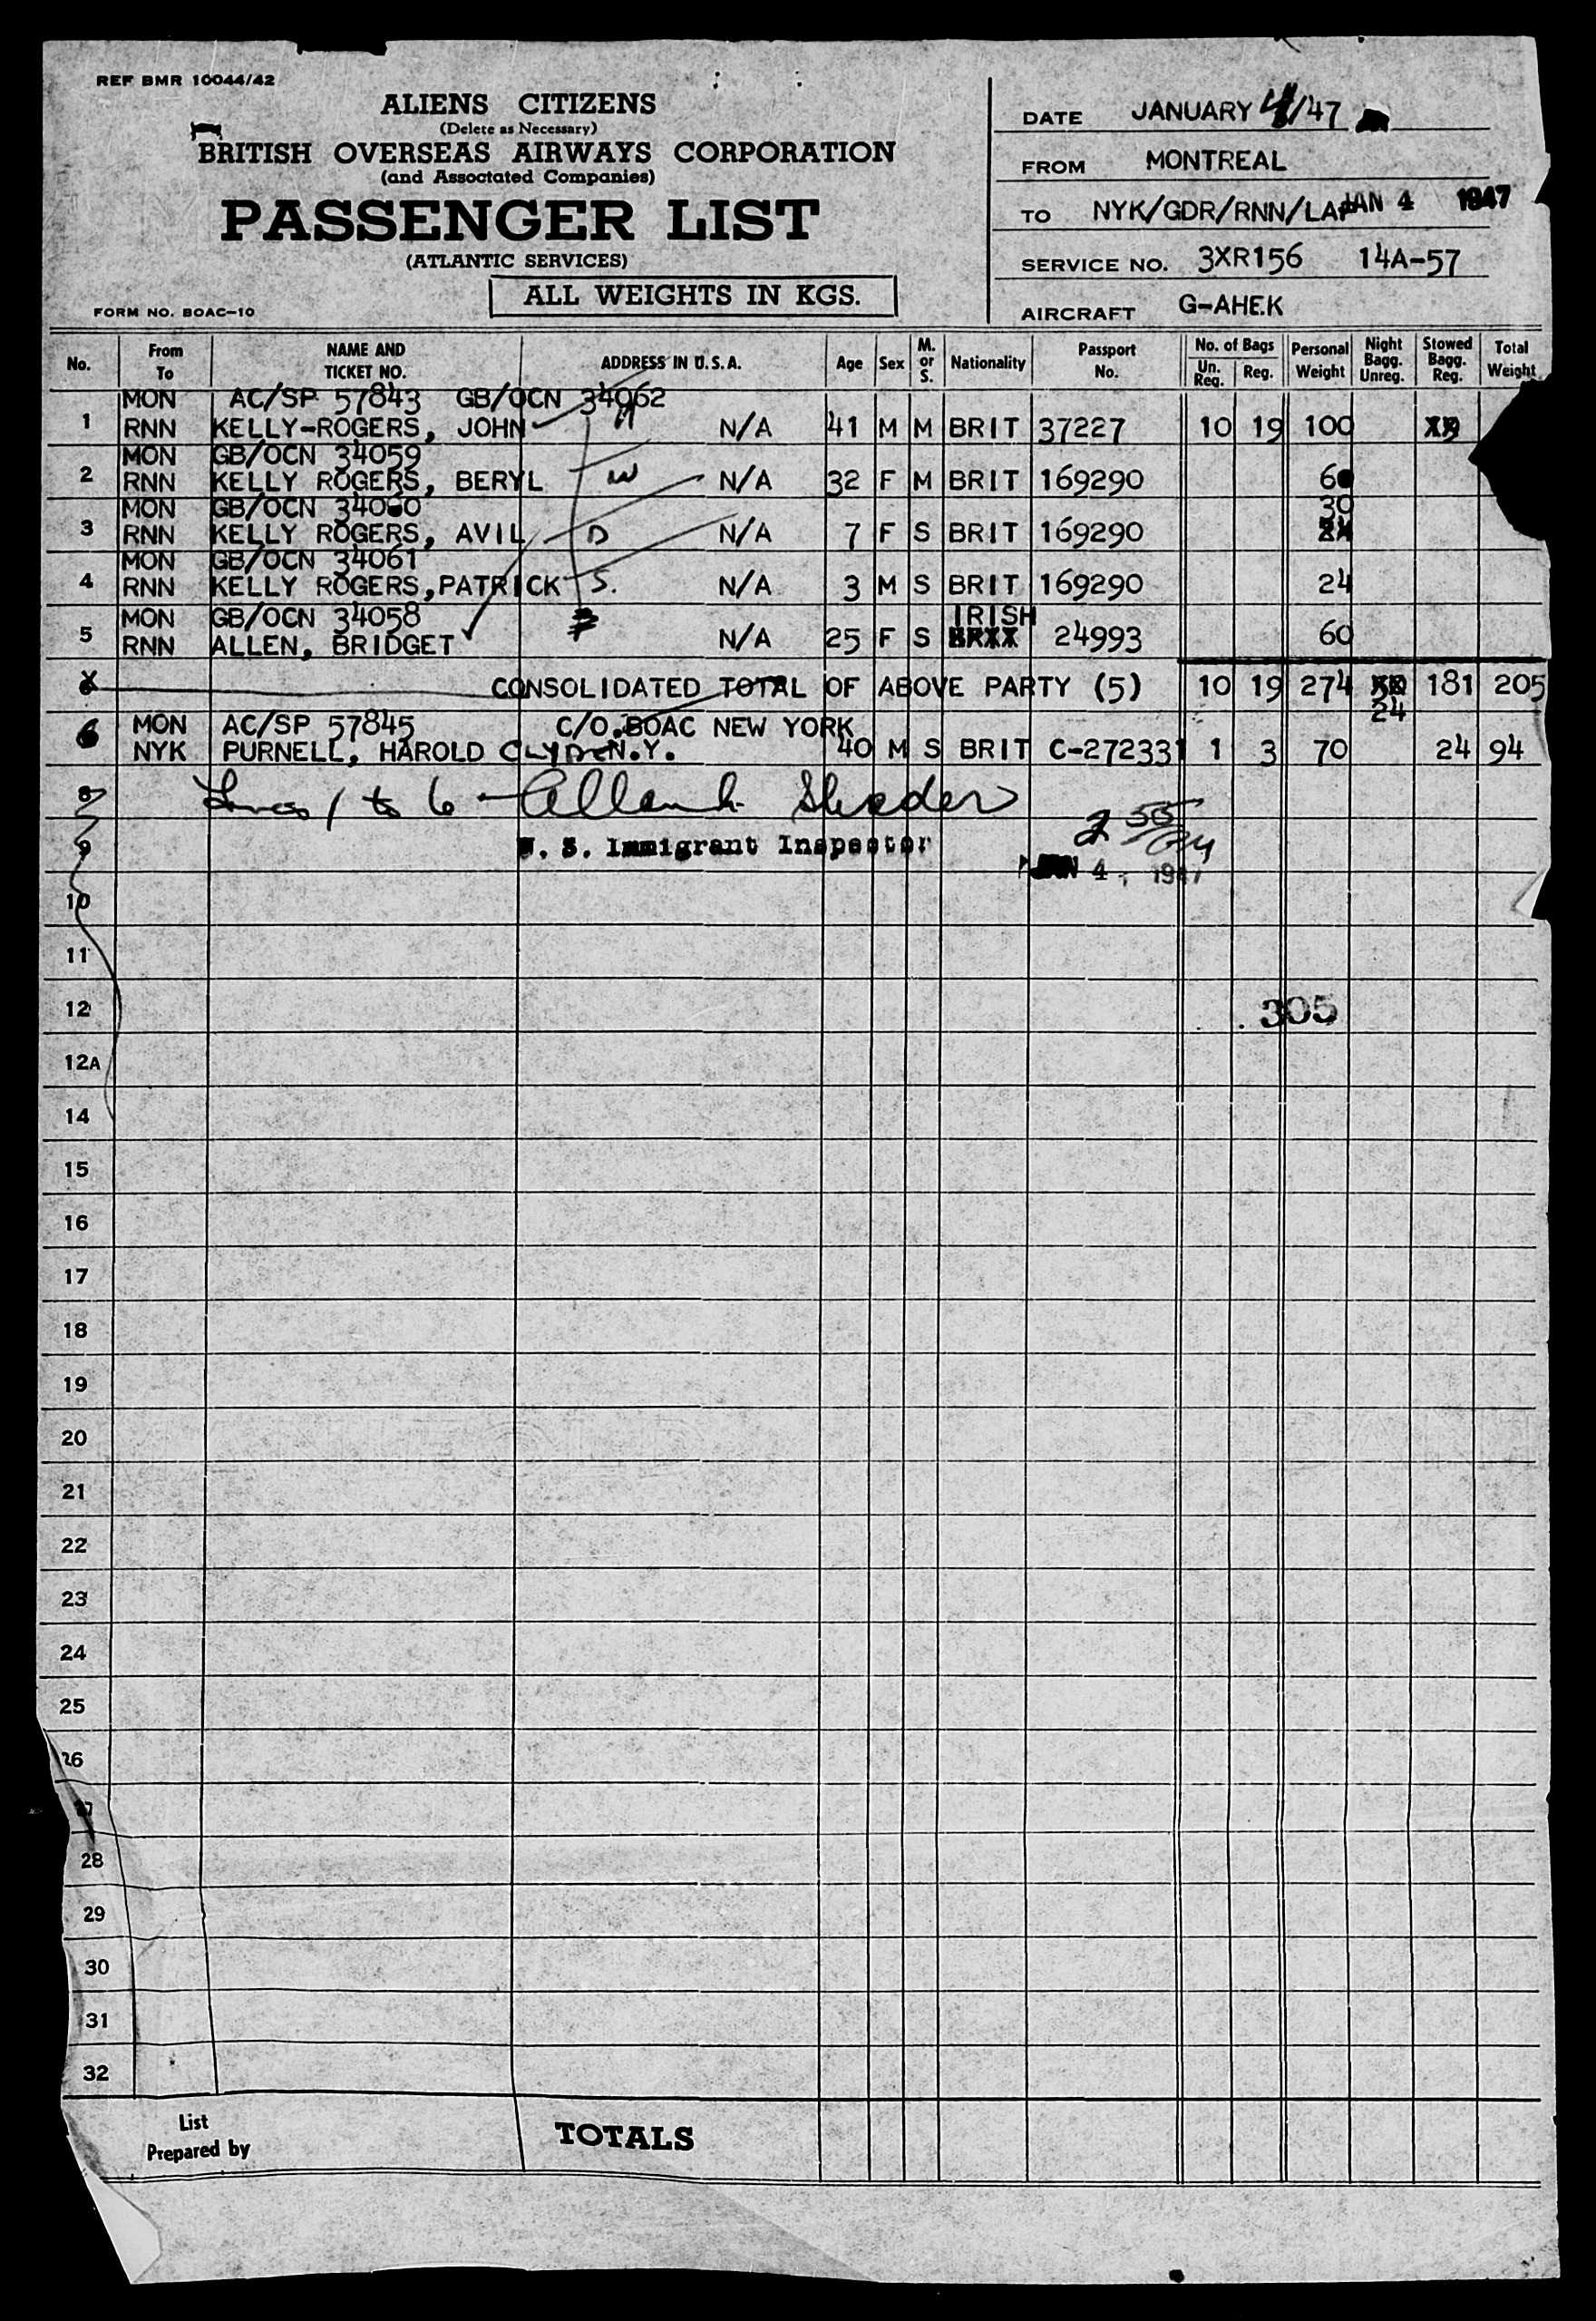 REF BMR 10044/42
ALIENS CITIZENS
(Delete as Necessary)
BRITISH OVERSEAS AIRWAYS CORPORATION
(and Associated Companies)
PASSENGER LIST
(ATLANTIC SERVICES)
ALL WEIGHTS IN KGS.
FORM NO. BOAC-10
DATE JANUARY 4/47
FROM MONTREAL
TO NYK/GDR/RNN/LAP JAN 4 1947
SERVICE NO. 3XR156 14A-57
AIRCRAFT G-AHEK
No. From To NAME AND TICKET NO. ADDRESS IN U.S.A. Age Sex M. or S. Nationality Passport No. No. of Bags Un. Reg. Reg. Personal Weight Night Bagg. Unreg. Stowed Bagg. Reg. Total Weight
MON AC/SP 57843 GB/OCN 34062
1 RNN KELLY-ROGERS, JOHN H N/A 41 M M BRIT 37227 10 19 100
MON GB/OCN 34059
2 RNN KELLY ROGERS, BERYL W N/A 32 F M BRIT 169290 60
MON GB/OCN 34060 30
3 RNN KELLY ROGERS, AVIL D N/A 7 F S BRIT 169290
MON GB/OCN 34061
4 RNN KELLY ROGERS,PATRICK S. N/A 3 M S BRIT 169290 24
MON GB/OCN 34058 IRISH
5 RNN ALLEN, BRIDGET N/A 25 F S 24993 60
CONSOLIDATED TOTAL OF ABOVE PARTY (5) 10 19 274 24 181 205
6 MON AC/SP 57845 C/O.BOAC NEW YORK
NYK PURNELL, HAROLD CLYDE N.Y. 40 M S BRIT C-272331 1 3 70 24 94
8 Lines 1 to 6
9 U. S. Immigrant Inspector
JAN 4, 1947
10
11
12 305
12A
14
15
16
17
18
19
20
21
22
23
24
25
26
27
28
29
30
31
32
List Prepared by TOTALS